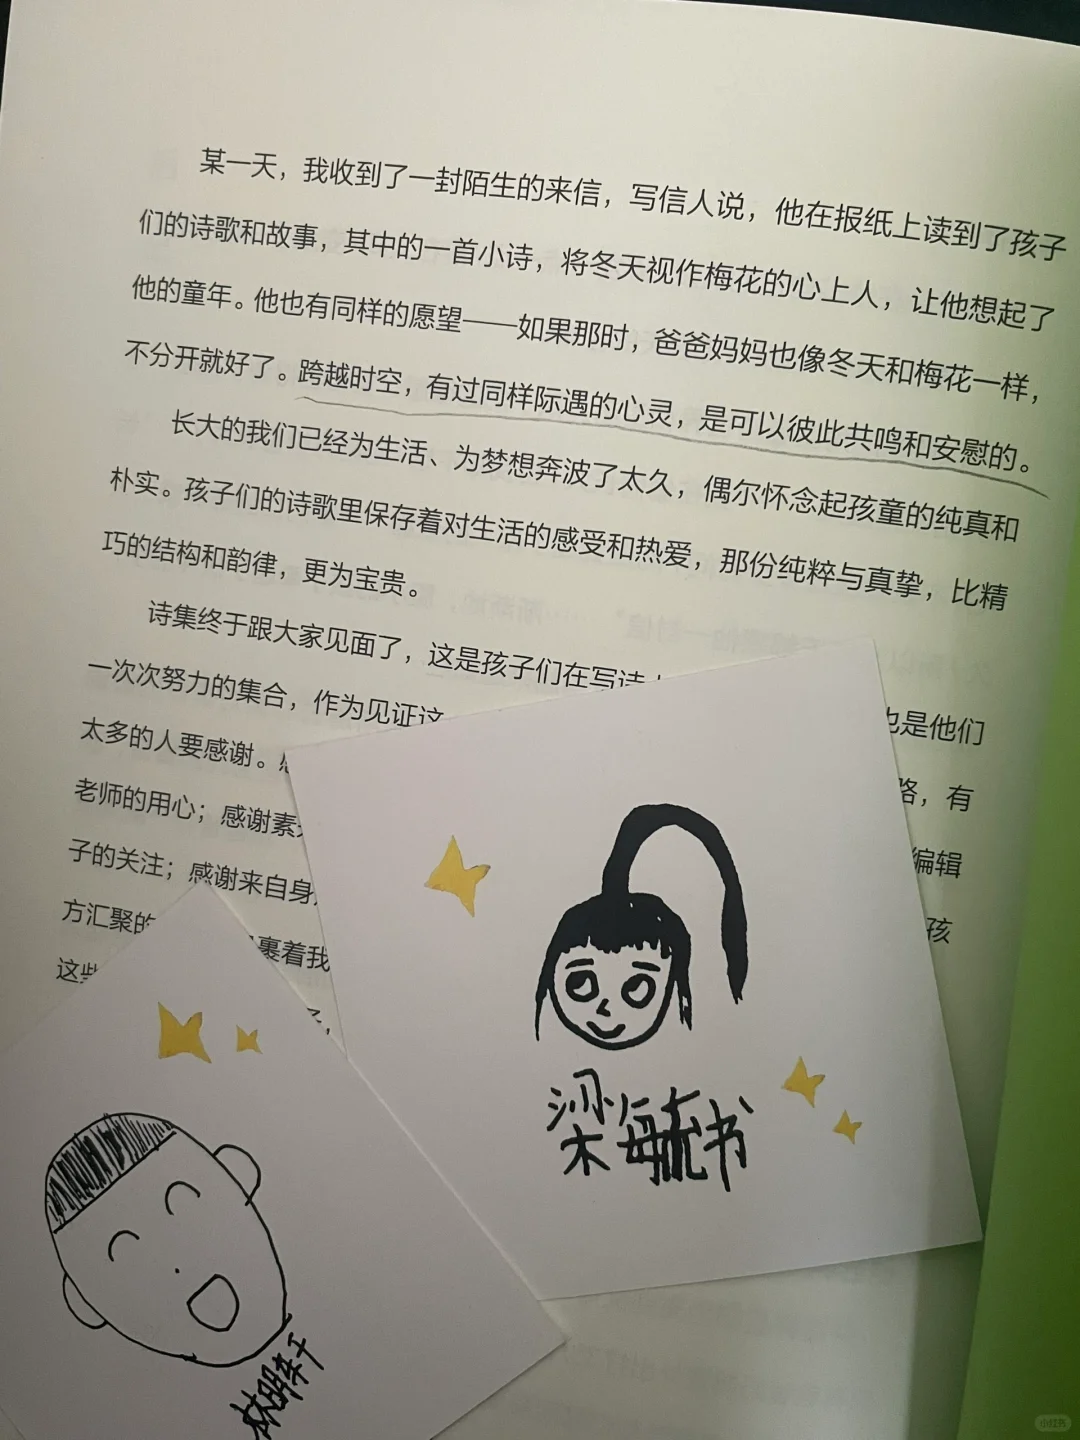 某一天，我收到了一封陌生的来信，写信人说，他在报纸上读到了孩子
们的诗歌和故事，其中的一首小诗，将冬天视作梅花的心上人，让他想起了
他的童年。他也有同样的愿望——如果那时，爸爸妈妈也像冬天和梅花一样，
不分开就好了。跨越时空，有过同样际遇的心灵，是可以彼此共鸣和安慰的。
长大的我们已经为生活、为梦想奔波了太久，偶尔怀念起孩童的纯真和
朴实。孩子们的诗歌里保存着对生活的感受和热爱，那份纯粹与真挚，比精
巧的结构和韵律，更为宝贵。
诗集终于跟大家见面了，这是孩子们在写诗
一次次努力的集合，作为见证这 也是他们
太多的人要感谢。 路，有
老师的用心；感谢素 编辑
子的关注；感谢来自身 孩
方汇聚的 裹着我
这些
梁毓书
小红书